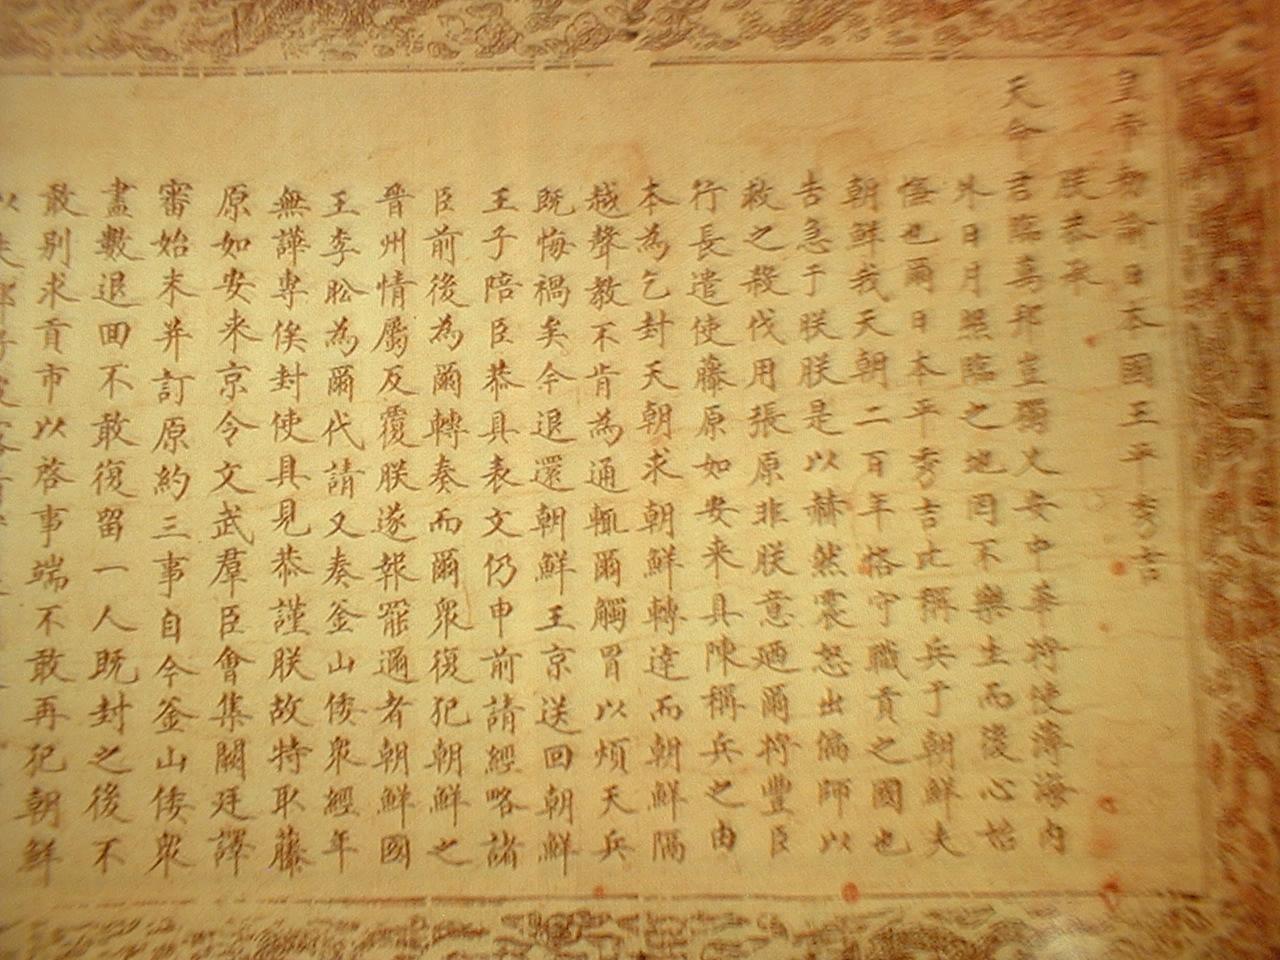 皇帝勅諭日本國王平秀吉
朕恭承
天命君臨萬邦豈獨乂安中華將使薄海內
外日月照臨之地罔不樂生而後心始
慊也爾日本平秀吉比稱兵于朝鮮夫
朝鮮我天朝二百年恪守職貢之國也
告急于朕朕是以赫然震怒出偏師以
救之殺伐用張原非朕意廼爾將豐臣
行長遣使藤原如安来具陳稱兵之由
本為乞封天朝求朝鮮轉達而朝鮮隔
越聲教不肯為通輒爾觸冒以煩天兵
既悔禍矣今退還朝鮮王京送回朝鮮
王子陪臣恭具表文仍申前請經略諸
臣前後為爾轉奏而爾衆復犯朝鮮之
晉州情屬反覆朕遂報罷邇者朝鮮國
王李昖為爾代請又奏釜山倭衆經年
無譁專俟封使具見恭謹朕故特取藤
原如安来京令文武羣臣會集闕廷譯
審始末并訂原約三事自今釜山倭衆
盡數退回不敢復留一人既封之後不
敢別求貢市以啓事端不敢再犯朝鮮
以失鄰好